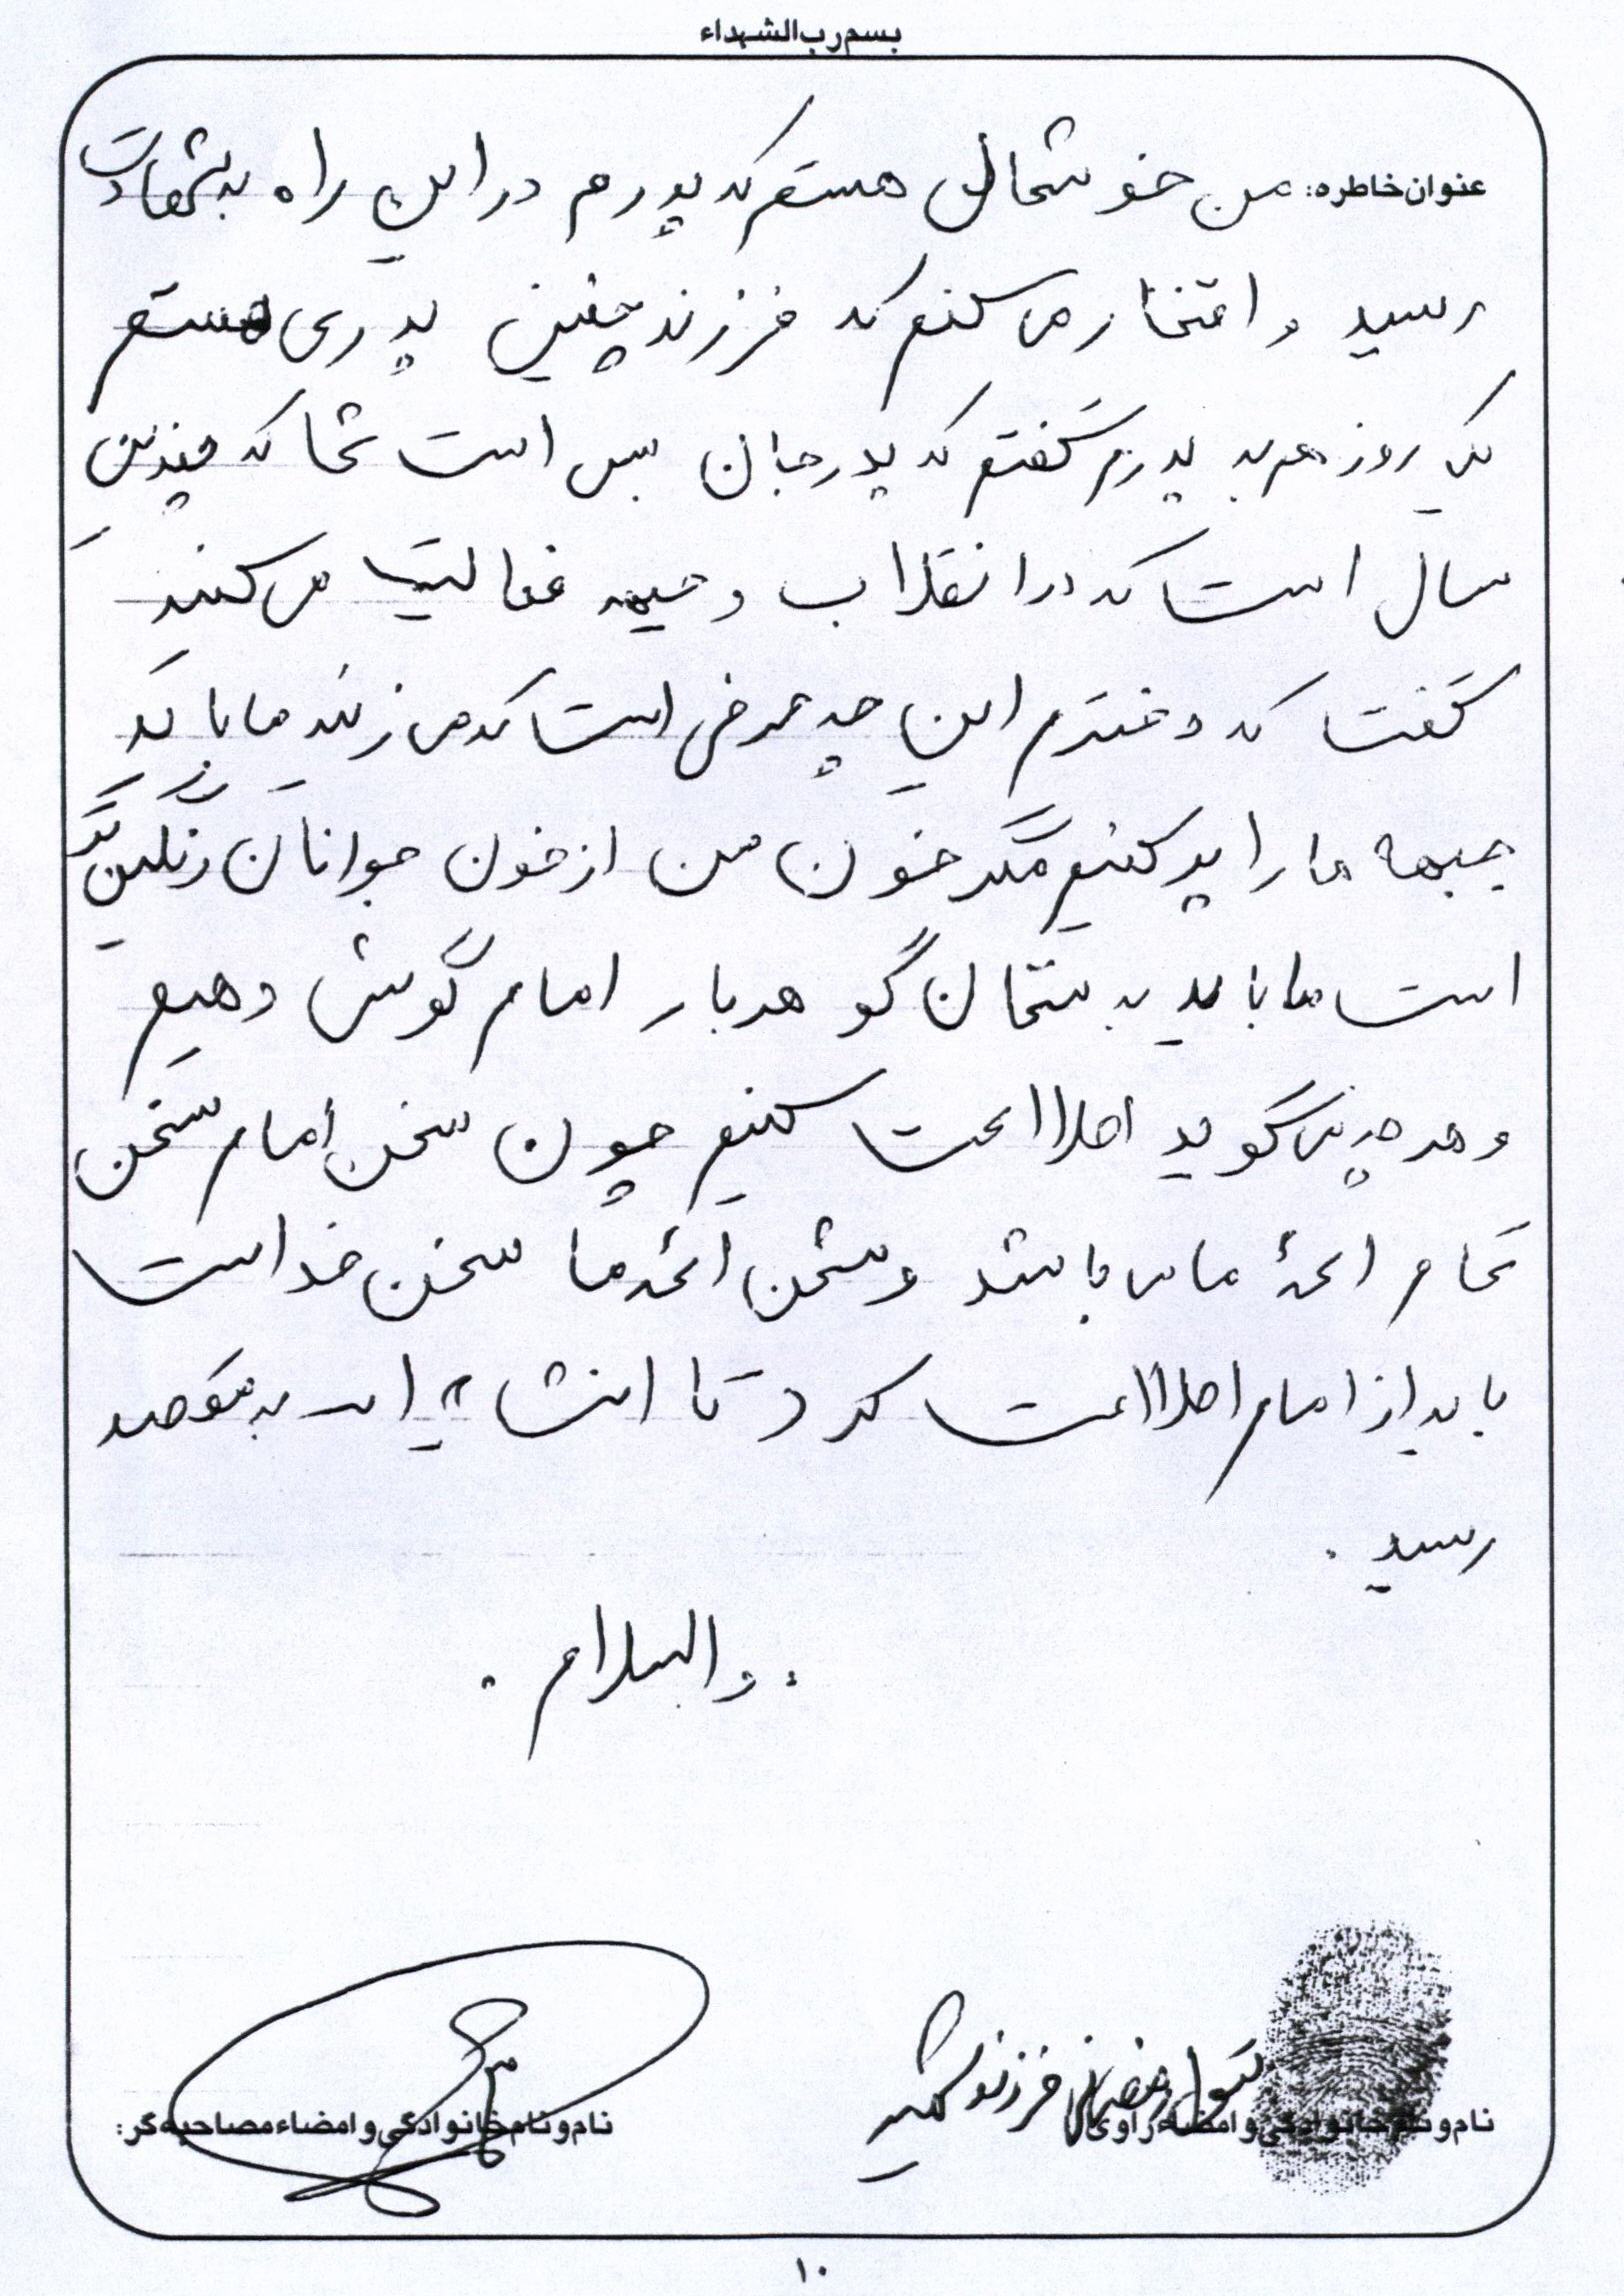 بسم رب الشهداء
عنوان خاطره: من خوشحال هستم که پدرم در این راه به شهادت
رسید و افتخار می کنم که فرزند چنین پدری هستم
یک روز هم به پدرم گفتم که پدر جان بس است شما که چندین
سال است که در انقلاب و جبهه فعالیت می کنید
گفت که دخترم این چه حرفی است که می زنید ما باید
جبهه ها را پر کنیم مگر خون من از خون جوانان رنگین تر
است ما باید به سخنان گو هر بار امام گوش دهیم
و هر چه می گوید اطاعت کنیم چون سخن امام سخن
تمام ائمۀ ما می باشد و سخن ائمه ما سخن خداست
باید از امام اطاعت کرد تا انشاء الله به مقصد
رسید .
. والسلام .
نام و نام خانوادگی و امضاء راوی: بتول رمضانی فرزند شهید
نام و نام خانوادگی و امضاء مصاحبه گر:
۱۰